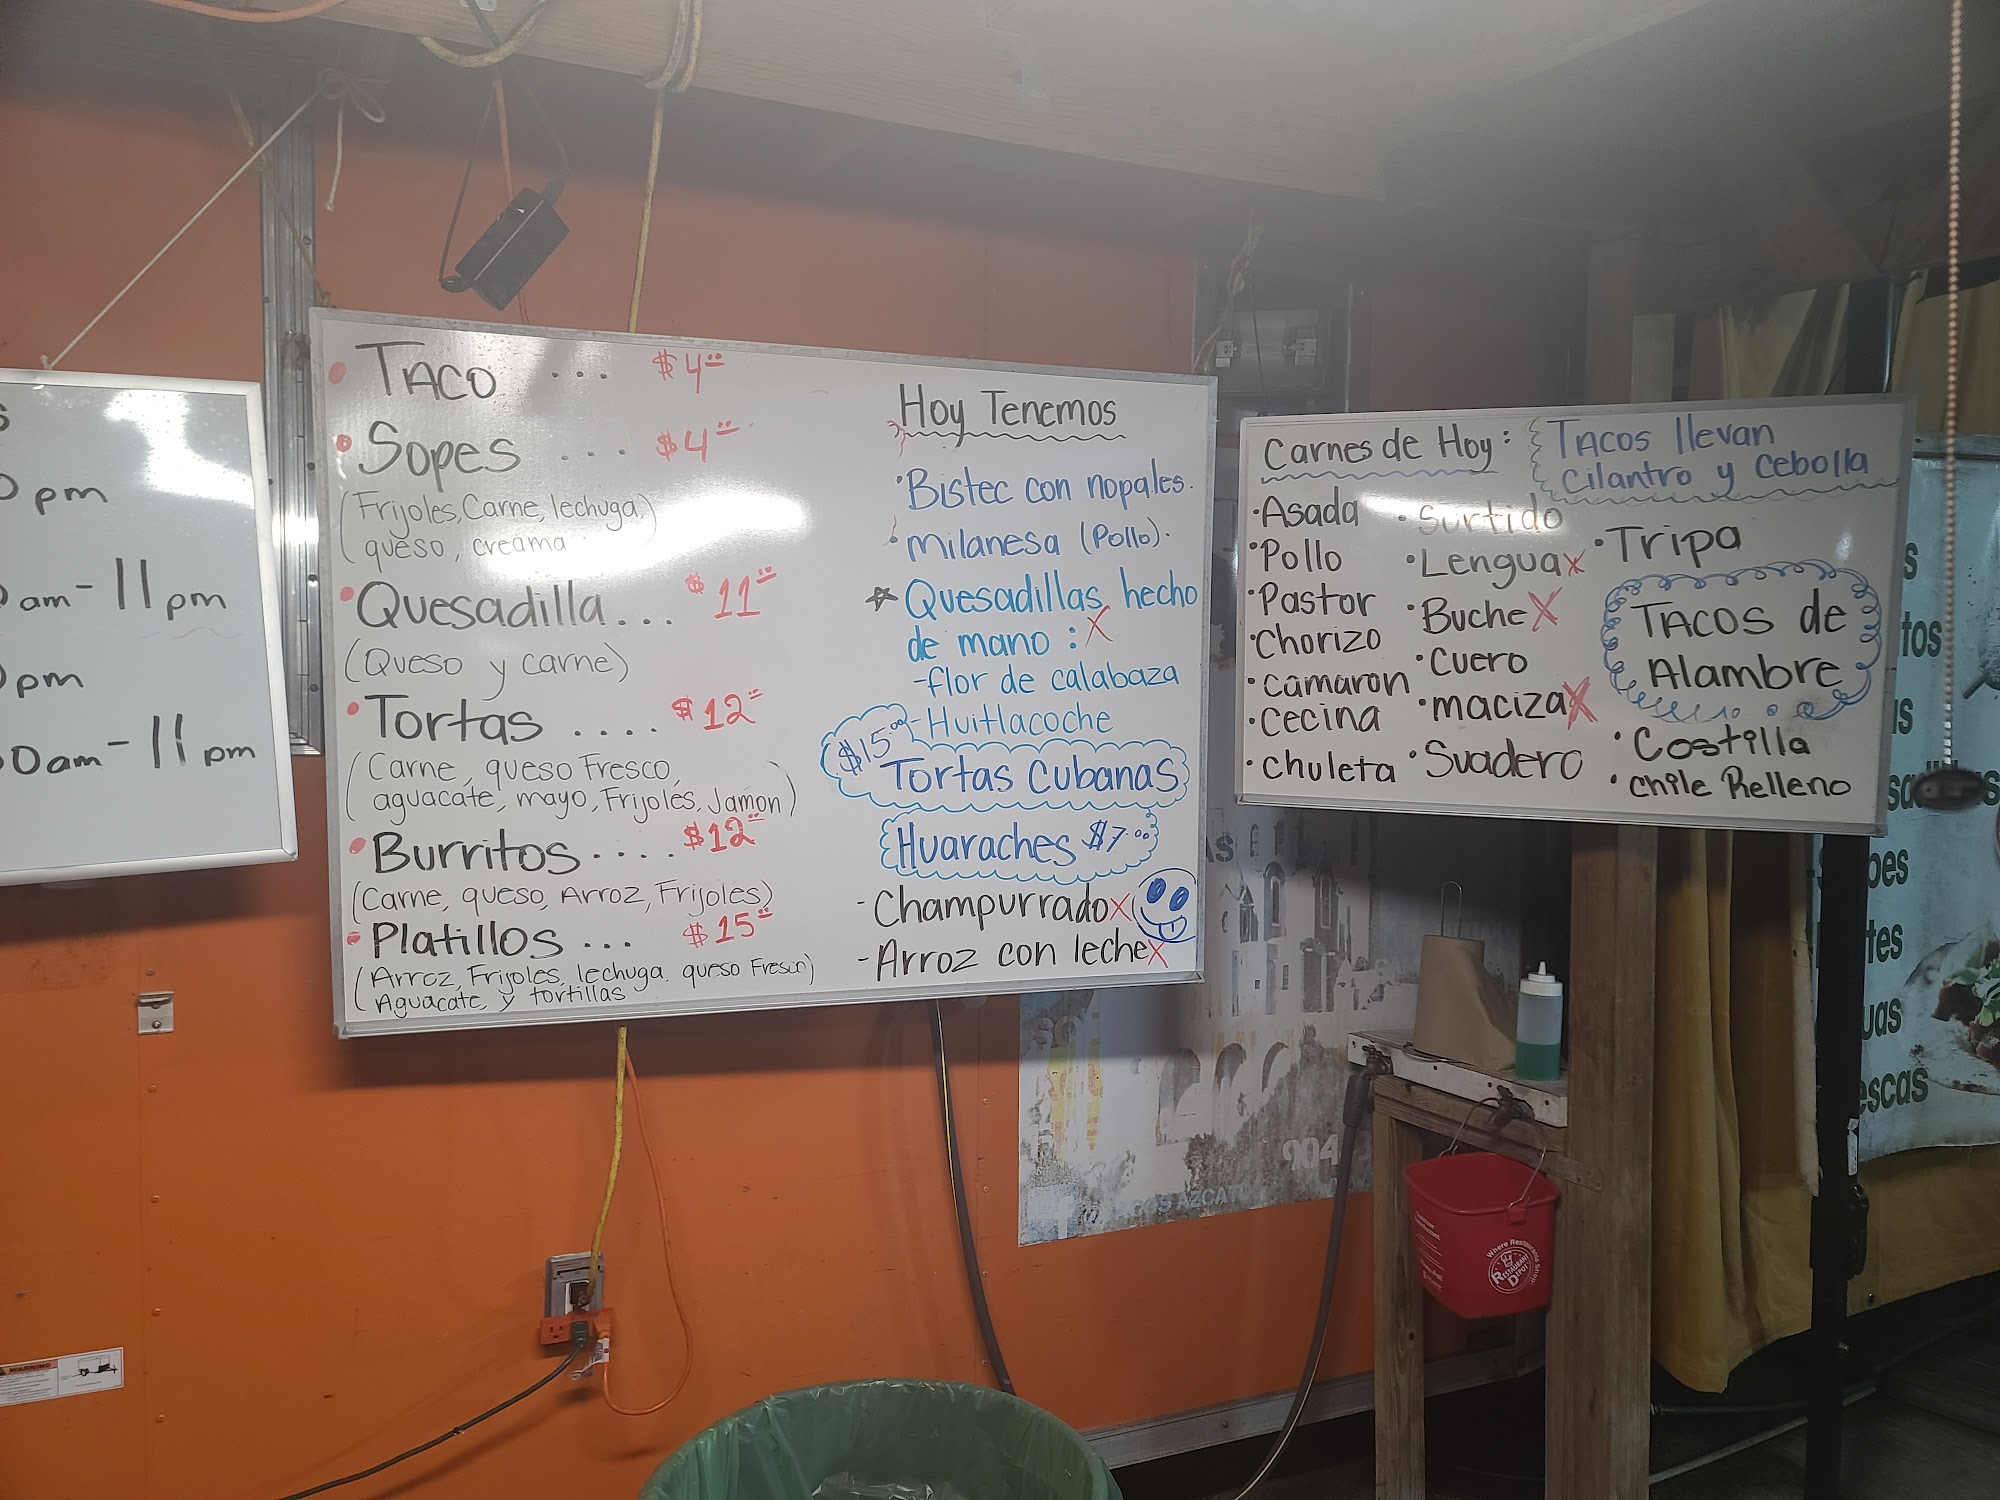 pm
am - 11 pm
pm
0am - 11 pm
• TACO ... $4.00
• Sopes .... $4.00
(Frijoles, Carne, lechuga,
queso, creama)
• Quesadilla ... $11.00
(Queso y carne)
• Tortas .... $12.00
(Carne, queso Fresco,
aguacate, mayo, Frijoles, Jamon)
• Burritos .... $12.00
(Carne, queso, Arroz, Frijoles)
• Platillos ... $15.00
(Arroz, Frijoles, lechuga. queso Fresco)
Aguacate, y tortillas
Hoy Tenemos
• Bistec con nopales.
• milanesa (Pollo).
Quesadillas hecho
de mano : X
- flor de calabaza
- Huitlacoche
$15.00
Tortas Cubanas
Huaraches $7.00
- Champurrado X
- Arroz con leche X
Carnes de Hoy :
TACOS llevan
Cilantro y Cebolla
• Asada
• Pollo
• Pastor
• Chorizo
• Camaron
• Cecina
• Chuleta
• Surtido
• Lengua X
• Buche X
• Cuero
• maciza X
• Suadero
• Tripa
TACOS de
Alambre
• Costilla
• Chile Relleno
904
WARNING
Where Restaurants Shop
RESTAURANT
DEPOT